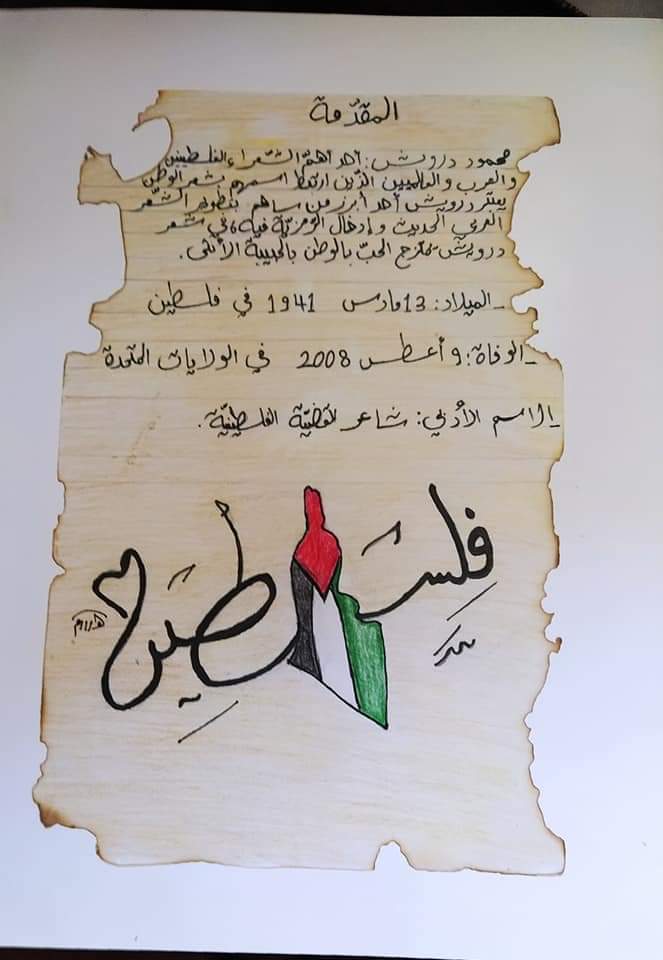 المقدّمة
محمود درويش: أحد أهمّ الشّعراء الفلسطينين
والعرب والعالميين الذّين ارتبط اسمهم بشعر الوطن
يعتبر درويش أحد أبرز من ساهم بتطوير الشّعر
العربي الحديث وإدخال الرّمزيّة فيه، في شعر
درويش يمتزج الحبّ بالوطن بالحبيبة الأنثى.
_الميلاد: 13 مارس 1941 في فلسطين
_الوفاة: 9 أغسطس 2008 في الولايات المتحدة
_الاسم الأدبي: شاعر القضيّة الفلسطينيّة.
فلسطين